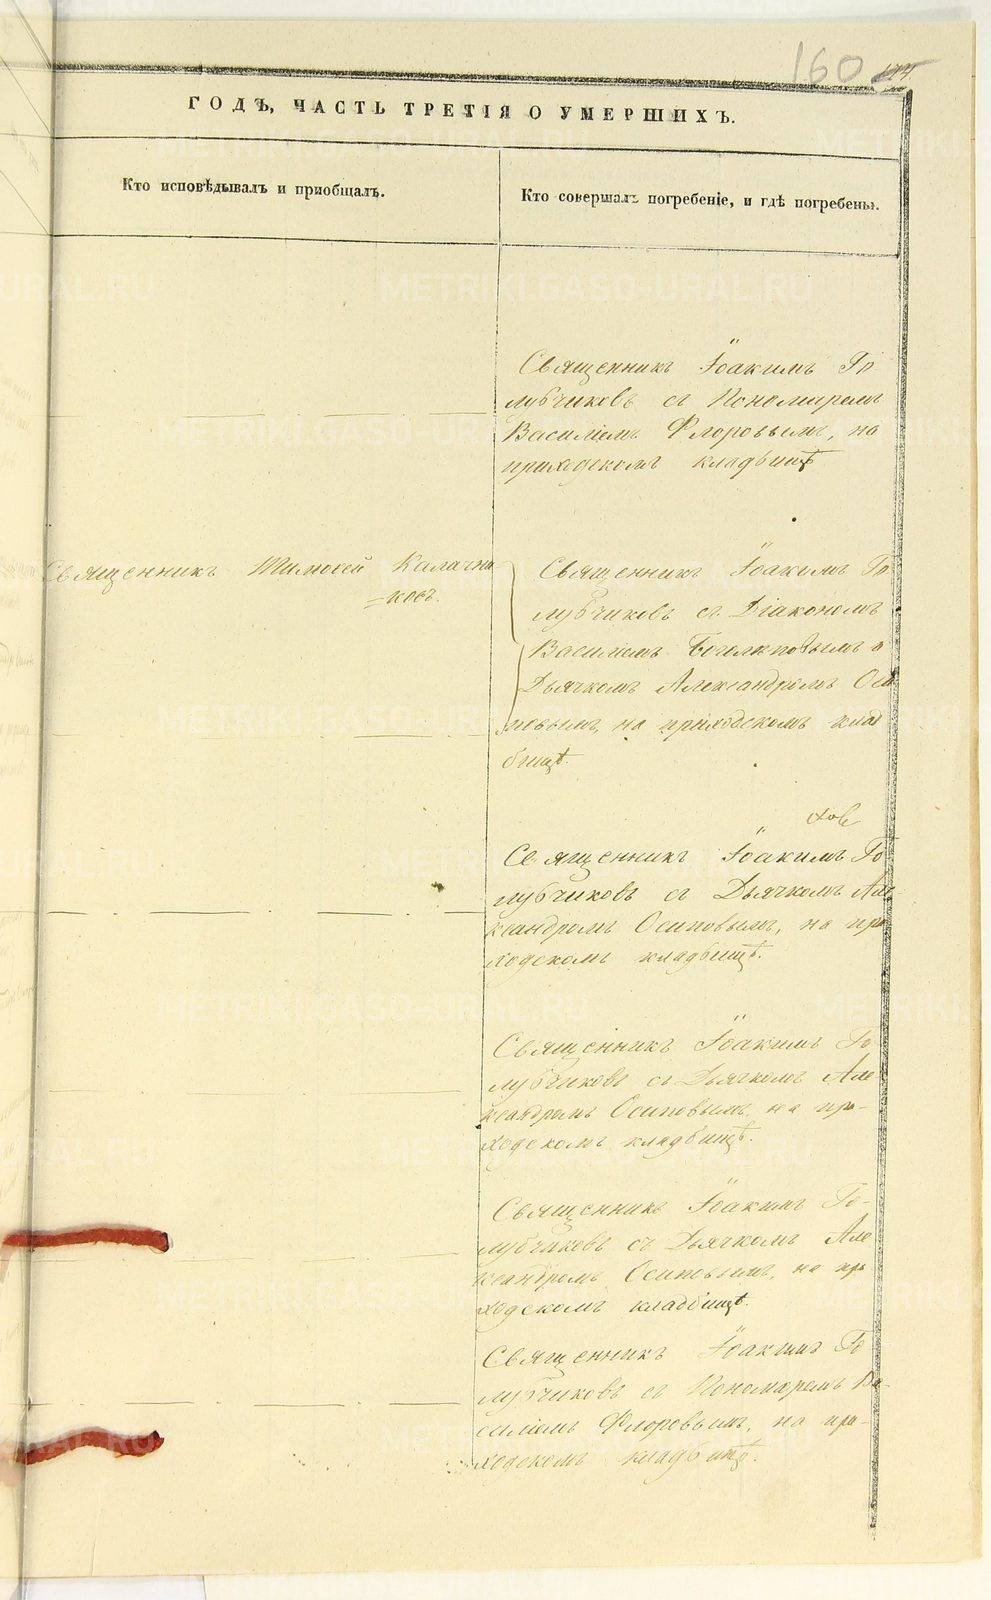 160
ГОДЪ, ЧАСТЬ ТРЕТІЯ О УМЕРШИХЪ.
Кто исповѣдывалъ и приобщалъ.
Кто совершалъ погребеніе, и гдѣ погребены.
Священникъ Іоакимъ Го
лубчиковъ съ Пономаремъ
Василіемъ Флоровымъ, на
приходскомъ кладбищѣ
Священникъ Тимофей Калачни
=ковъ.
Священникъ Іоакимъ Го
лубчиковъ съ Діакономъ
Василіемъ и
Дьячкомъ Александромъ Оси
повымъ, на приходскомъ клад
бищѣ.
Священникъ Іоакимъ Го-
лубчиковъ съ Дьячкомъ Але-
ксандромъ Осиповымъ, на при
ходскомъ кладбищѣ.
Священникъ Іоакимъ Го
лубчиковъ съ Дьячкомъ Але
ксандромъ Осиповымъ, на при-
ходскомъ кладбищѣ.
Священникъ Іоакимъ Го-
лубчиковъ съ Дьячкомъ Але
ксандромъ Осиповымъ, на при
ходскомъ кладбищѣ.
Священникъ Іоакимъ Го
лубчиковъ съ Пономаремъ Ва-
силіемъ Флоровымъ, на при-
ходскомъ кладбищѣ.
METRIKI.GASO-URAL.RU